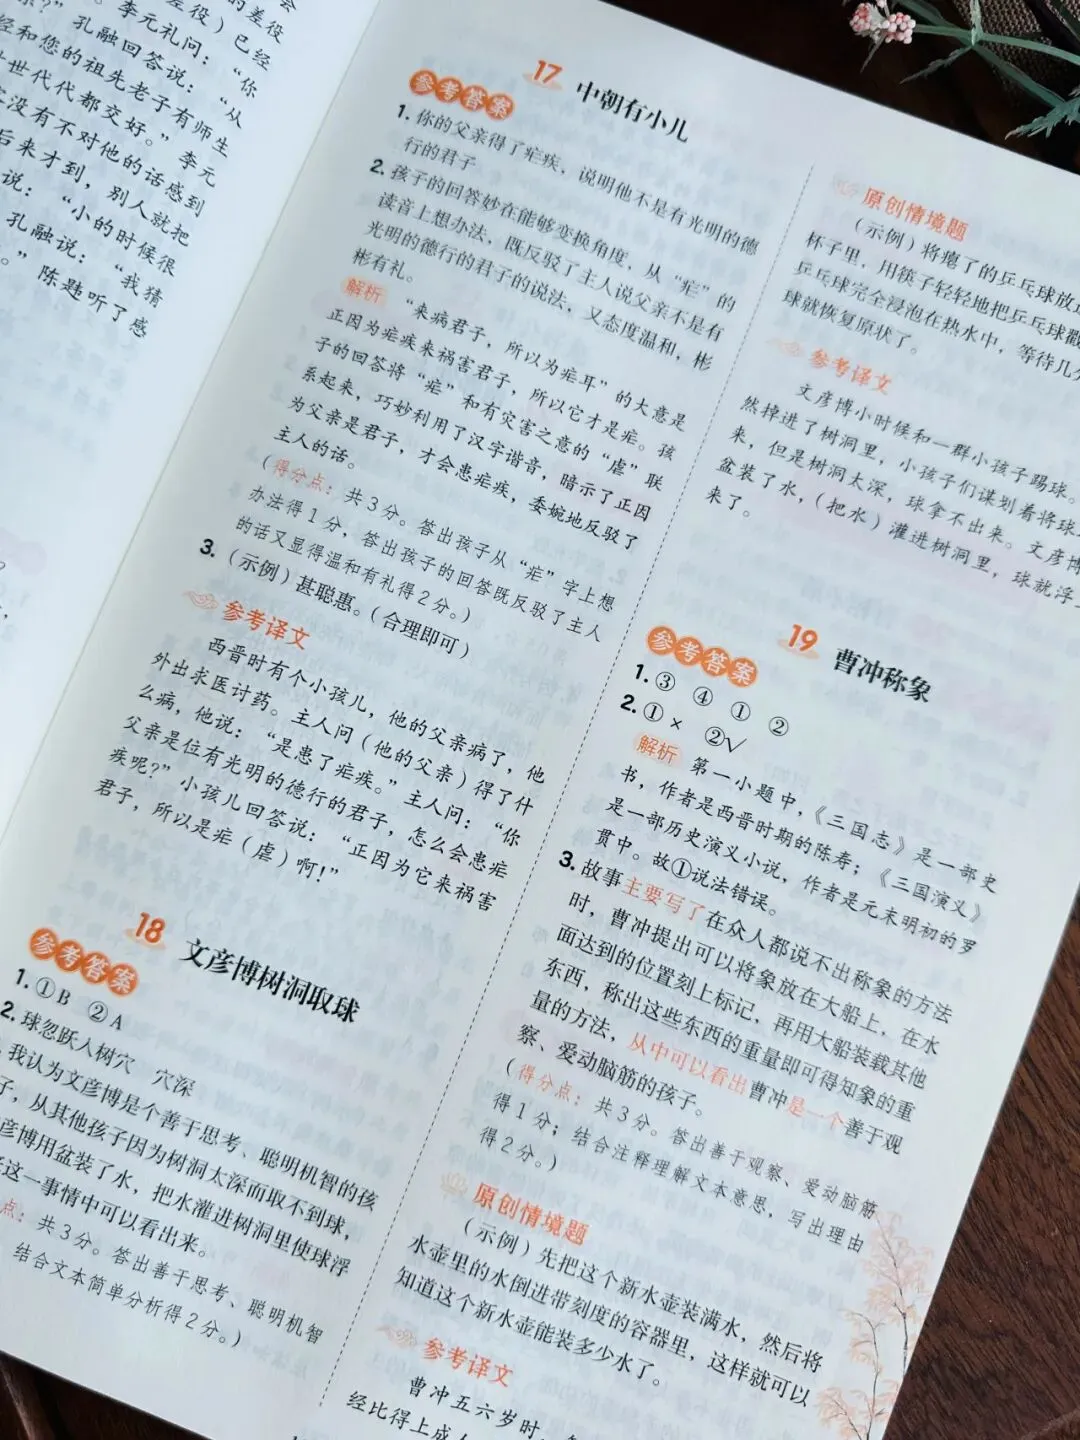 的差役
差役）已经
李元礼问：“你
孔融回答说：“从
经和您的祖先老子有师生
世世代代都交好。”李元
没有不对他的话感到
后来才到，别人就把
说：“小的时候很
孔融说：“我猜
。”陈韪听了感
17 中朝有小儿
参考答案
1. 你的父亲得了疟疾，说明他不是有光明的德
行的君子
2. 孩子的回答妙在能够变换角度，从“疟”的
读音上想办法，既反驳了主人说父亲不是有
光明的德行的君子的说法，又态度温和，彬
彬有礼。
解析 “来病君子，所以为疟耳”的大意是
正因为疟疾来祸害君子，所以它才是疟。孩
子的回答将“疟”和有灾害之意的“虐”联
系起来，巧妙利用了汉字谐音，暗示了正因
为父亲是君子，才会患疟疾，委婉地反驳了
主人的话。
（得分点：共3分。答出孩子从“疟”字上想
办法得1分，答出孩子的回答既反驳了主人
的话又显得温和有礼得2分。）
3.（示例）甚聪惠。（合理即可）
参考译文
西晋时有个小孩儿，他的父亲病了，他
外出求医讨药。主人问（他的父亲）得了什
么病，他说：“是患了疟疾。”主人问：“你
父亲是位有光明的德行的君子，怎么会患疟
疾呢？”小孩儿回答说：“正因为它来祸害
君子，所以是疟（虐）啊！”
18 文彦博树洞取球
参考答案
1. ①B ②A
2. 球忽跃入树穴 穴深
我认为文彦博是个善于思考、聪明机智的孩
子，从其他孩子因为树洞太深而取不到球，
彦博用盆装了水，把水灌进树洞里使球浮
这一事情中可以看出来。
点：共3分。答出善于思考、聪明机智
结合文本简单分析得2分。）
原创情境题
（示例）将瘪了的乒乓球放
杯子里，用筷子轻轻地把乒乓球戳
乒乓球完全浸泡在热水中，等待几分
球就恢复原状了。
参考译文
文彦博小时候和一群小孩子踢球。
然掉进了树洞里，小孩子们谋划着将球
来，但是树洞太深，球拿不出来。文彦博
盆装了水，（把水）灌进树洞里，球就浮
来了。
19 曹冲称象
参考答案
1. ③ ④ ① ②
2. ①× ②√
解析 第一小题中，《三国志》是一部史
书，作者是西晋时期的陈寿；《三国演义》
是一部历史演义小说，作者是元末明初的罗
贯中。故①说法错误。
3. 故事主要写了在众人都说不出称象的方法
时，曹冲提出可以将象放在大船上，在水
面达到的位置刻上标记，再用大船装载其他
东西，称出这些东西的重量即可得知象的重
量的方法，从中可以看出曹冲是一个善于观
察、爱动脑筋的孩子。
（得分点：共3分。答出善于观察、爱动脑筋
得1分；结合注释理解文本意思，写出理由
得2分。）
原创情境题
（示例）先把这个新水壶装满水，然后将
水壶里的水倒进带刻度的容器里，这样就可以
知道这个新水壶能装多少水了。
参考译文
曹冲五六岁时，
经比得上成人